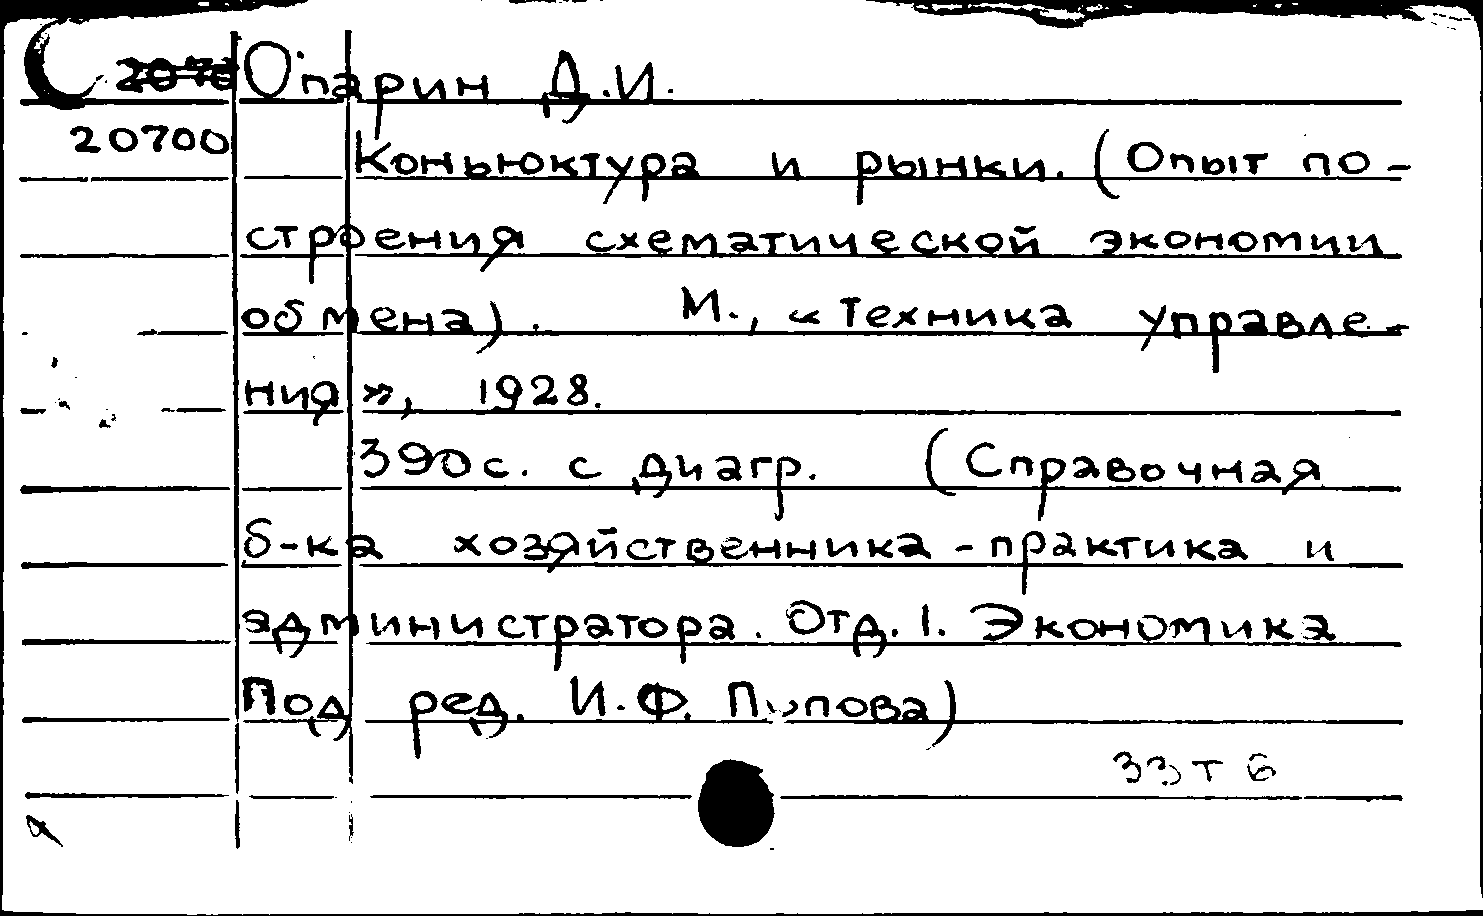 Опарин Д.И.
20700
Коньюктура и рынки. (Опыт по-
строения схематической экономии
обмена). М., «Техника управле-
ния», 1928.
390с. с диагр. (Справочная
б-ка хозяйственника-практика и
администратора. Отд. 1. Экономика
Под ред. И.Ф. Попова)
33т6